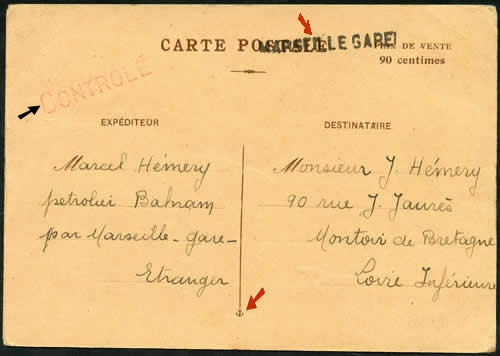 CARTE POSTALE
MARSEILLE GARE
PRIX DE VENTE
90 centimes
CONTROLÉ
EXPÉDITEUR
Marcel Hémery
petrolier Bahram
par Marseille-gare-
Etranger
DESTINATAIRE
Monsieur J. Hémery
90 rue J. Jaurès
Montoir de Bretagne
Loire Inférieure